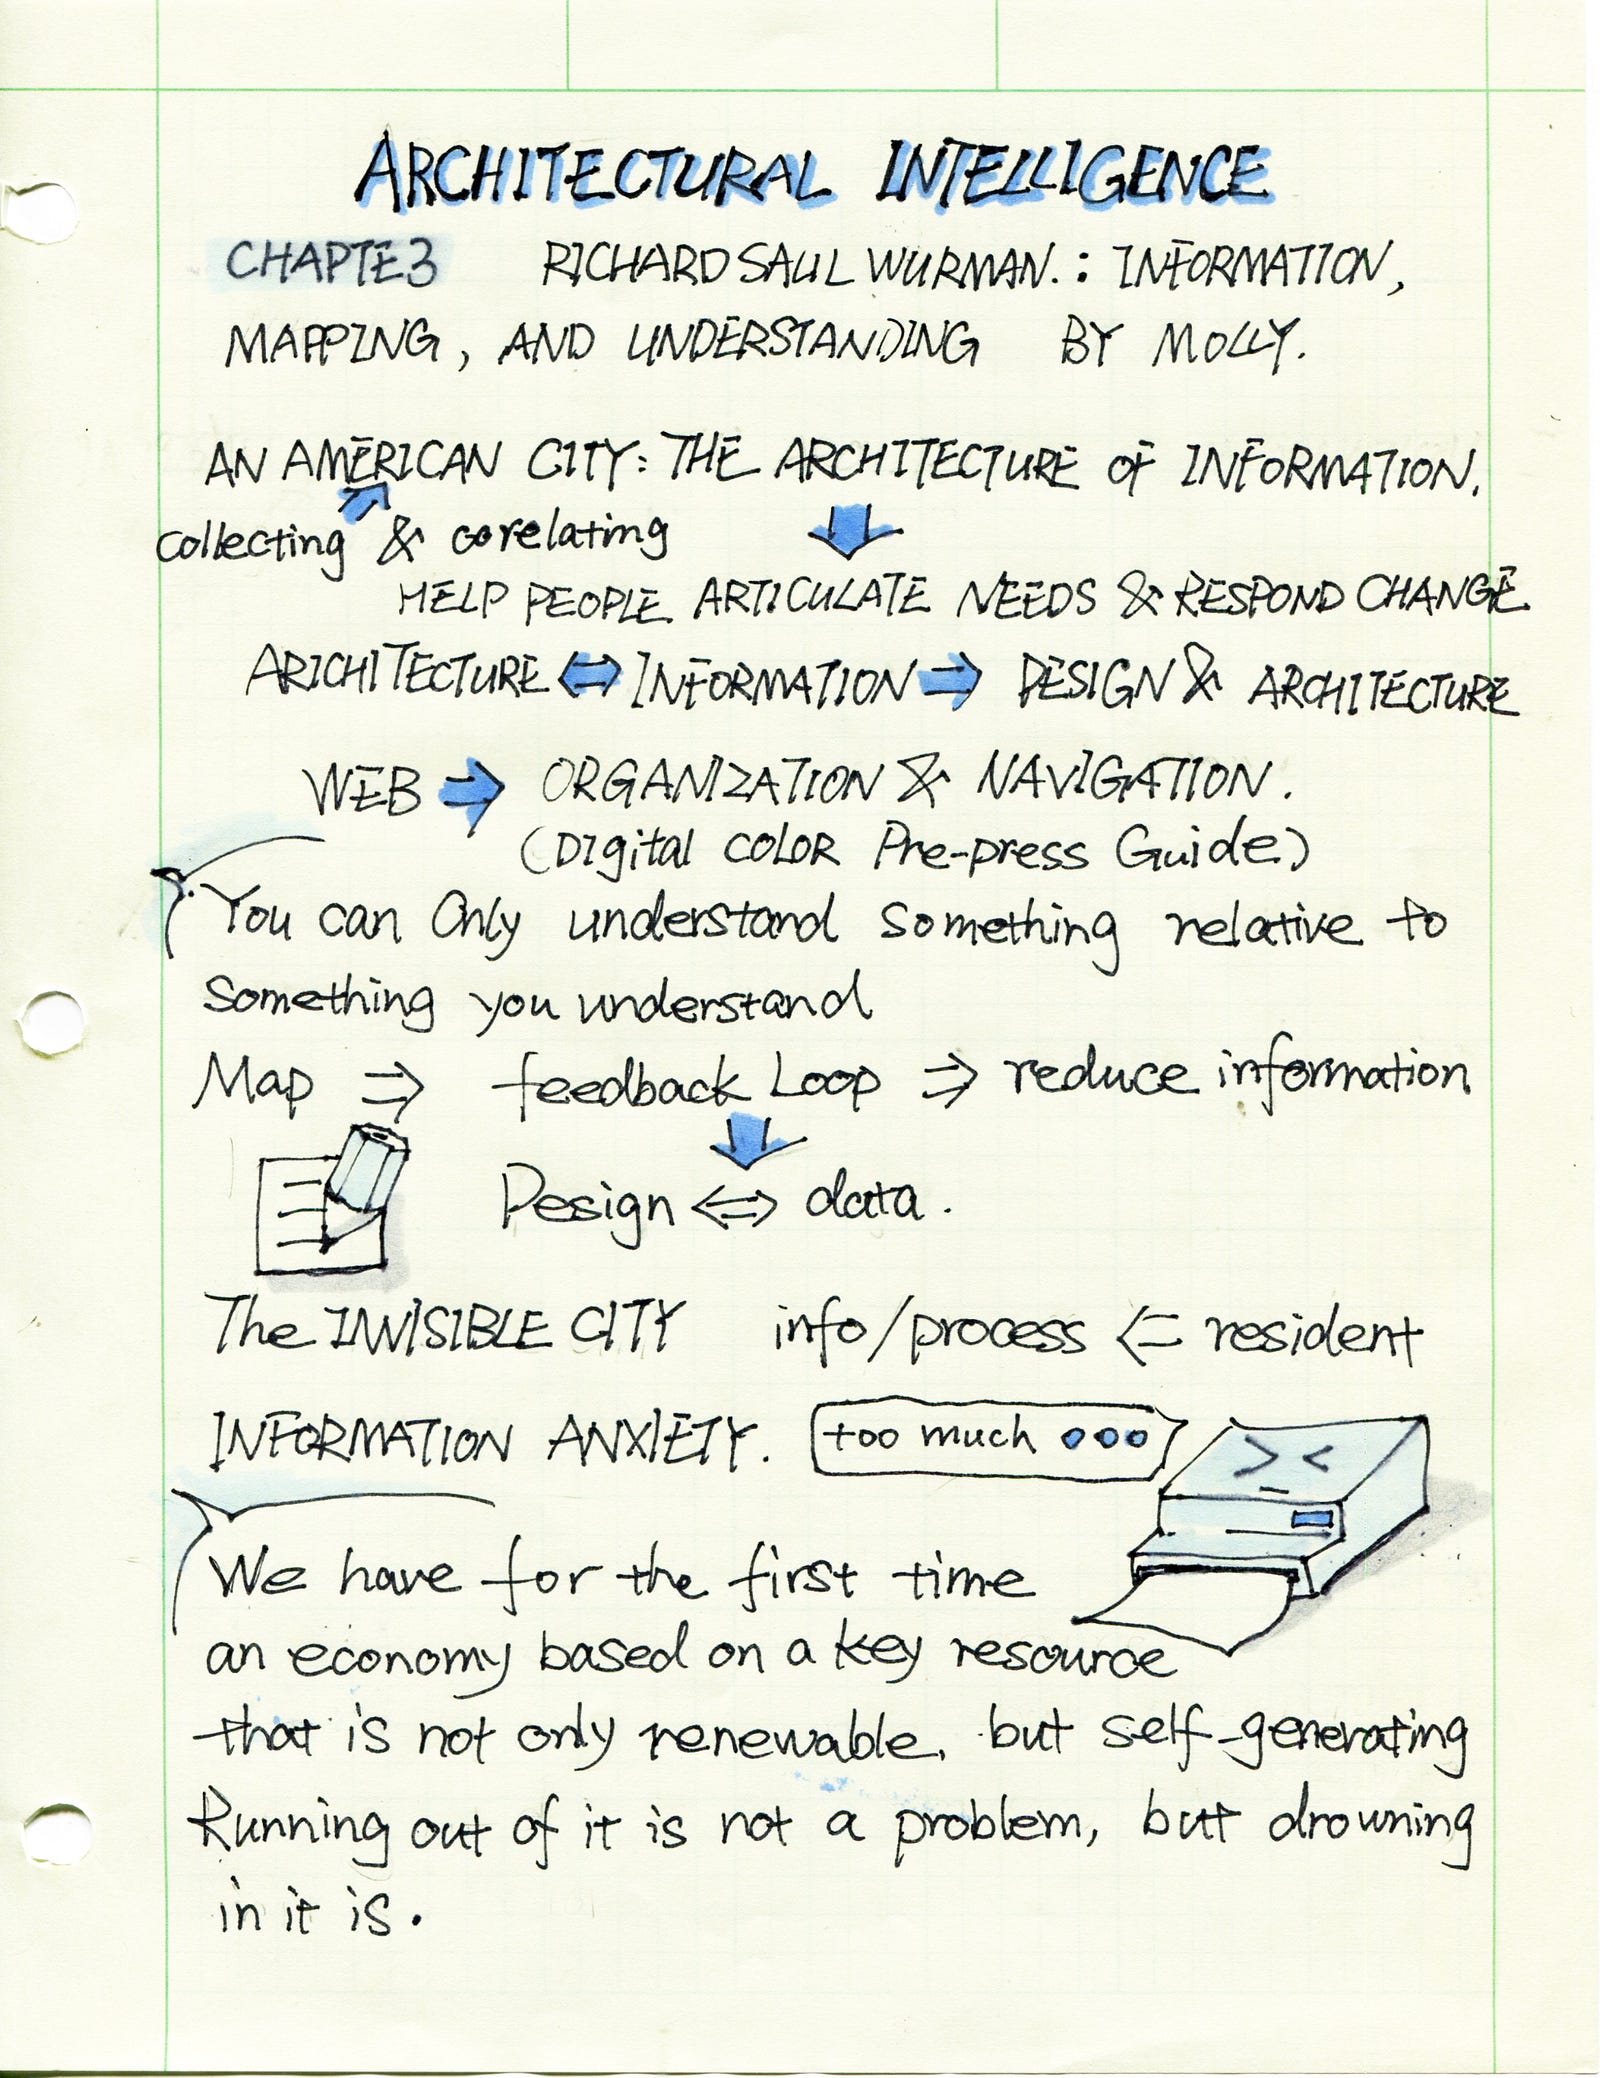 ARCHITECTURAL INTELLIGENCE
CHAPTE3 RICHARD SAUL WURMAN.: INFORMATION,
MAPPING, AND UNDERSTANDING BY MOLLY.
AN AMERICAN CITY: THE ARCHITECTURE OF INFORMATION.
collecting & corelating
HELP PEOPLE ARTICULATE NEEDS & RESPOND CHANGE
ARICHITECTURE ⇔ INFORMATION ⇒ DESIGN & ARCHITECTURE
WEB ⇒ ORGANIZATION & NAVIGATION.
(Digital COLOR Pre-press Guide)
You can Only understand something relative to
something you understand
Map ⇒ feedback Loop ⇒ reduce information
Design ⇔ data.
The INVISIBLE CITY info/process ⇐ resident
INFORMATION ANXIETY. too much ooo
We have for the first time
an economy based on a key resource
that is not only renewable, but self-generating
Running out of it is not a problem, but drowning
in it is.